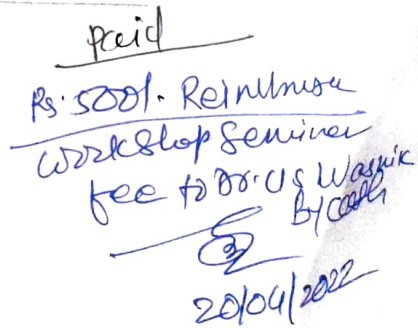 Paid
Rs. 500/. Reimburse
Workshop Seminar
fee to Dr. U S Wasnik
By Cash
20/04/2022